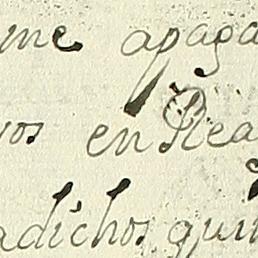 me apaga
vos en Rea
adichos quin